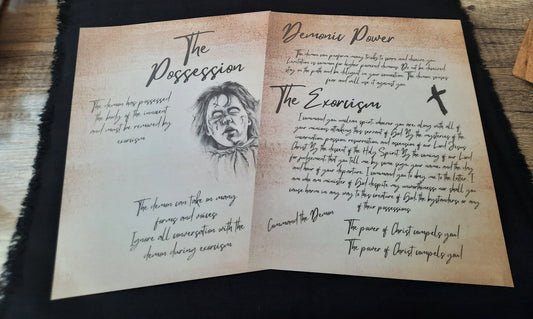 The
Possession
The demon has possessed
the body of the innocent
and must be removed by
exorcism
The demon can take on many
forms and voices
Ignore all conversation with the
demon during exorcism
Demonic Power
The demon can perform many tricks to scare and deceive you
Levitation is common for higher powered demons. Do not be deceived
stay on the path and be diligent in your incantation. The demon senses
fear and will use it against you
The Exorcism
I command you unclean spirit whoever you are along with all of
your minions attacking this servant of God. By the mysteries of the
incarnation passion resurrection and ascension of our Lord Jesus
Christ. By the descent of the Holy Spirit. By the coming of our Lord
for judgement that you tell me by some sign your name and the day
and hour of your departure. I command you to obey me to the letter. I
who am a minister of God despite my unworthiness nor shall you
cause harm in any way to this creature of God. the bystanders or any
of their possessions.
Command the Demon
The power of Christ compels you!
The power of Christ compels you!